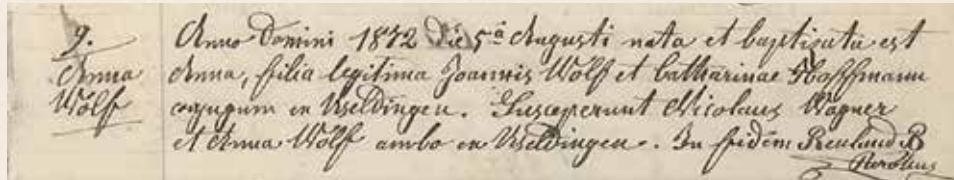 9.
Anna
Wolff
Anno Domini 1872 die 5ª Augusti nata et baptizata est
Anna, filia legitima Joannis Wolff et Catharinae Hoffmann
conjugum ex Useldingen. Susceperunt Nicolaus Wagner
et Anna Wolff ambo ex Useldingen. In fidem Reuland